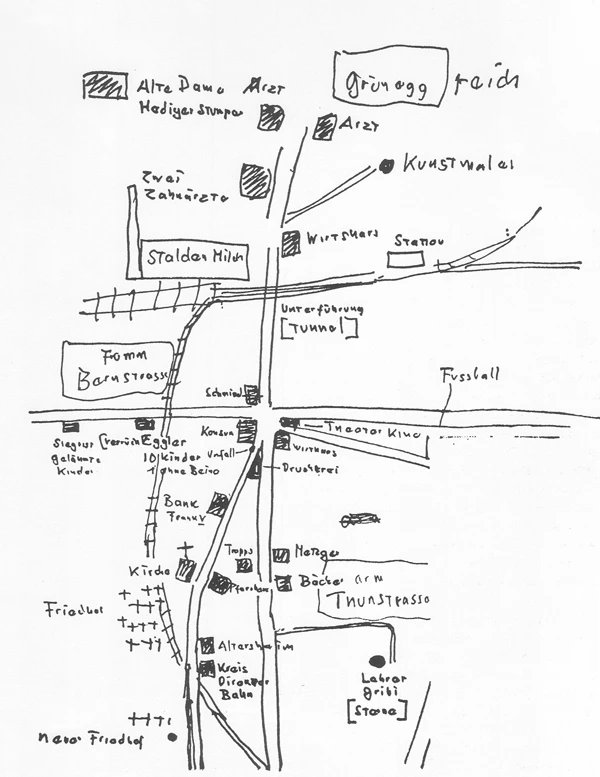 Alte Dame Arzt
Hediger Stumpe
Grünegg reich
Arzt
Kunstmaler
Zwei
Zahnärzte
Wirtshaus
Station
Stalden Milch
Unterführung
[Tunnel]
Fromm
Bernstrasse
Fussball
Schmied
Theater Kino
Konsum
Siegrist
gelähmte
Kinder
Eggler
10 Kinder
1 ohne Beine
Unfall
Wirthaus
Druckerei
Bank
Franky
Kirche
Metzger
Bäcker arm
Thunstrasse
Pfarrhaus
Friedhof
Altersheim
Kreis
Direkter
Bahn
Lehrer
Gribi
[Sterne]
neuer Friedhof